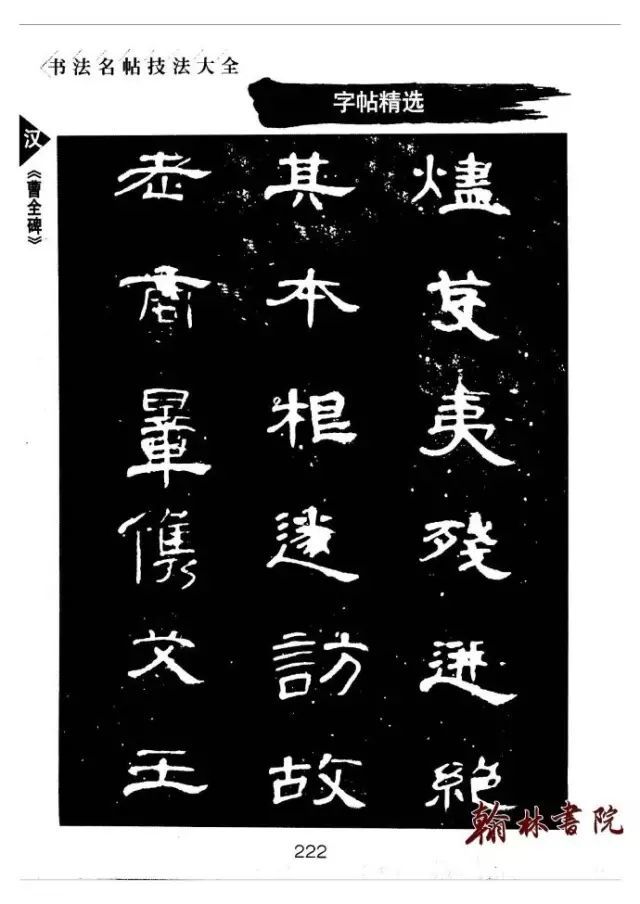 书法名帖技法大全
字帖精选
汉
《曹全碑》
燼芟夷殘迸絶
其本根遂訪故
老商量儁艾王
翰林書院
222